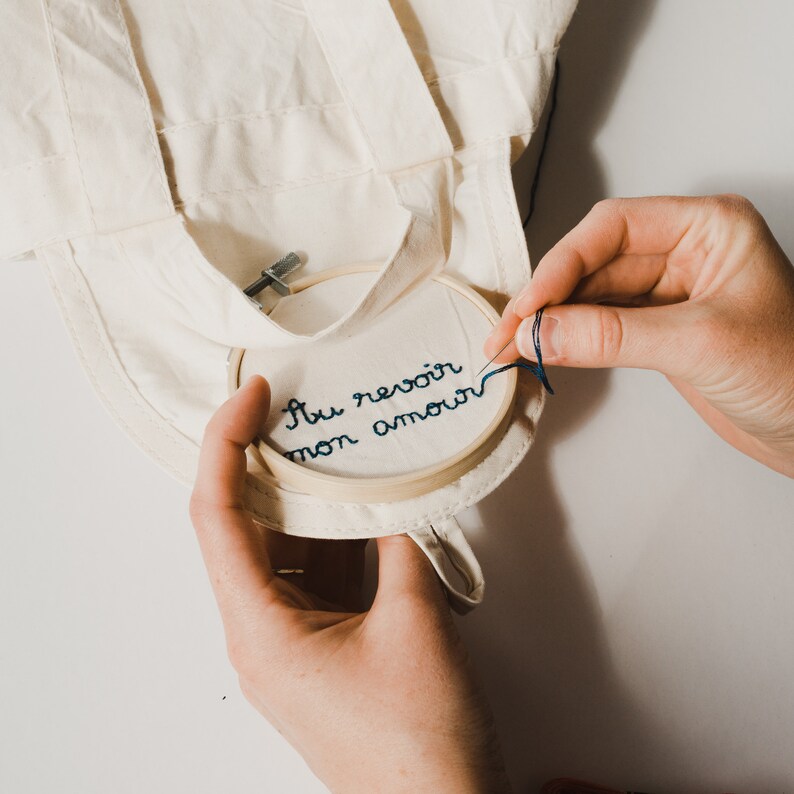 Au revoir
mon amour